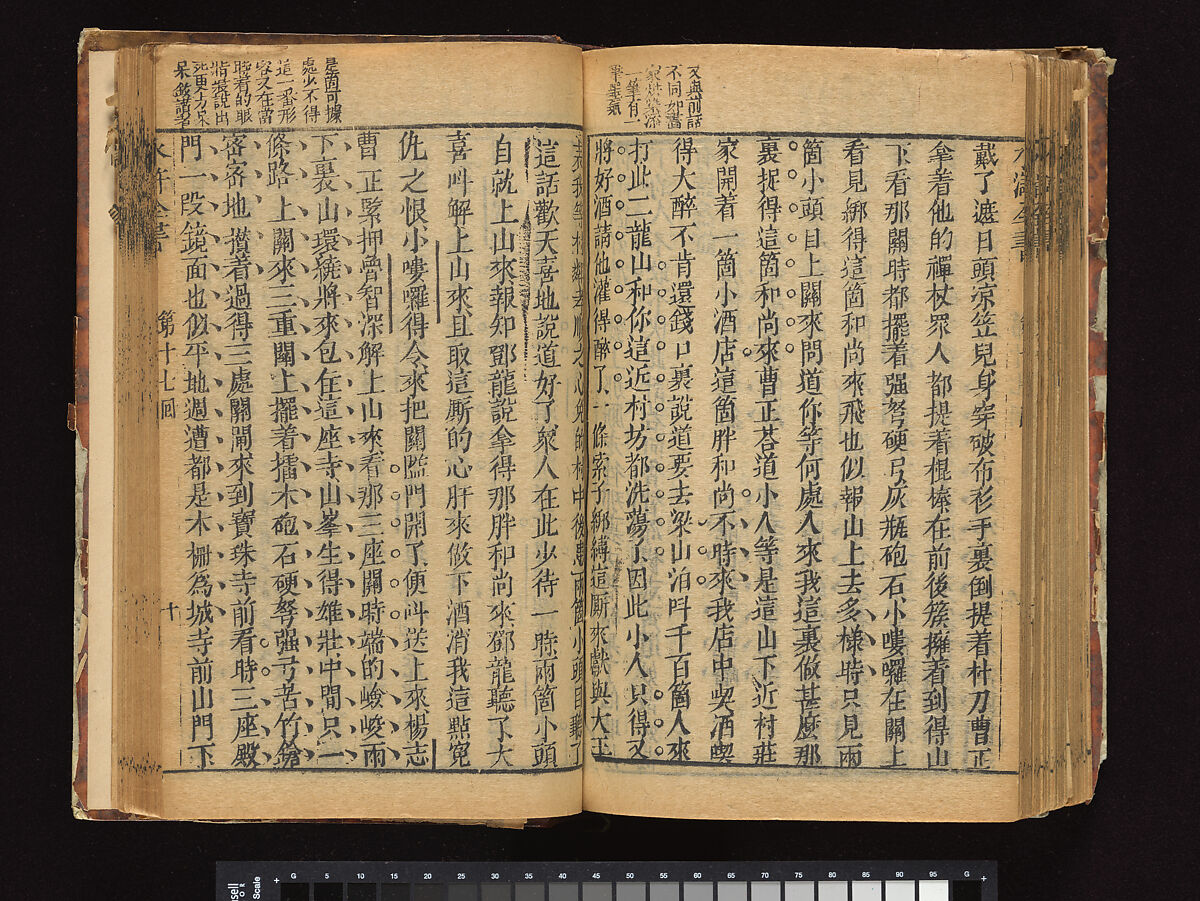 又與前話
不同如畫
一筆有一
戴了遮日頭涼笠兒身穿破布衫手裏倒提着朴刀曹正
拿着他的禪杖眾人都提着棍棒在前後簇擁着到得山
下看那關時都擺着强弩硬弓灰瓶砲石小嘍囉在關上
看見綁得這箇和尚來飛也似報山上去多樣時只見兩
箇小頭目上關來問道你等何處人來我這裏做甚麽那
裏捉得這箇和尚來曹正荅道小人等是這山下近村莊
家開着一箇小酒店這箇胖和尚不時來我店中喫酒喫
得大醉不肯還錢口裏說道要去梁山泊呌千百箇人來
打此二龍山和你這近村坊都洗蕩了因此小人只得又
將好酒請他灌得醉了一條索子綁縛這厮來獻與大王
是箇可據
處少不得
這一番形
容又在當
時看的眼
睛裏說出
我等村鄰孝順之心免的村中後患兩箇小頭目聽了
這話歡天喜地說道好了眾人在此少待一時兩箇小頭
自就上山來報知鄧龍說拿得那胖和尚來鄧龍聽了大
喜呌解上山來且取這厮的心肝來做下酒消我這點寃
仇之恨小嘍囉得令來把關隘門開了便呌送上來楊志
曹正緊押魯智深解上山來看那三座關時端的峻峻兩
下裏山環繞將來包住這座寺山峯生得雄壯中間只一
條路上關來三重關上擺着擂木砲石硬弩强弓苦竹鎗
密密地攢着過得三處關閘來到寶珠寺前看時三座殿
門一段鏡面也似平地週遭都是木柵爲城寺前山門下
水滸全書 第十七回 十